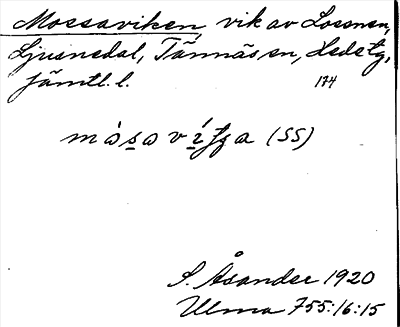 Mossaviken, vik av Lossnen,
Ljusnedal, Tännäs sn, Hede tg,
Jämtl. l. 174
(SS)
S. Åsander 1920
Ulma 755:16:15